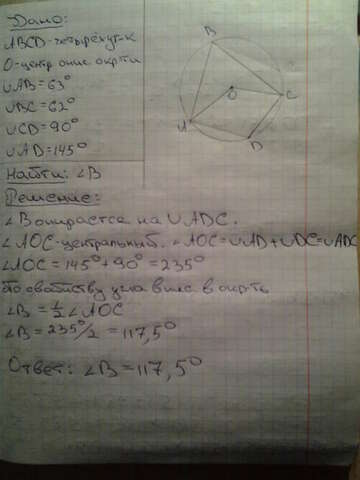 Дано:
ABCD-четырёхуг-к
O-центр опис. окр-ти
∪AB=63°
∪BC=62°
∪CD=90°
∪AD=145°
Найти: ∠B
B
O
C
A
D
Решение:
∠B опирается на ∪ADC.
∠AOC-центральный. ∠AOC=∪AD+∪DC=∪ADC
∠AOC=145°+90°=235°
По свойству угла впис в окр-ть
∠B=½∠AOC
∠B=235°/2=117,5°
Ответ: ∠B=117,5°